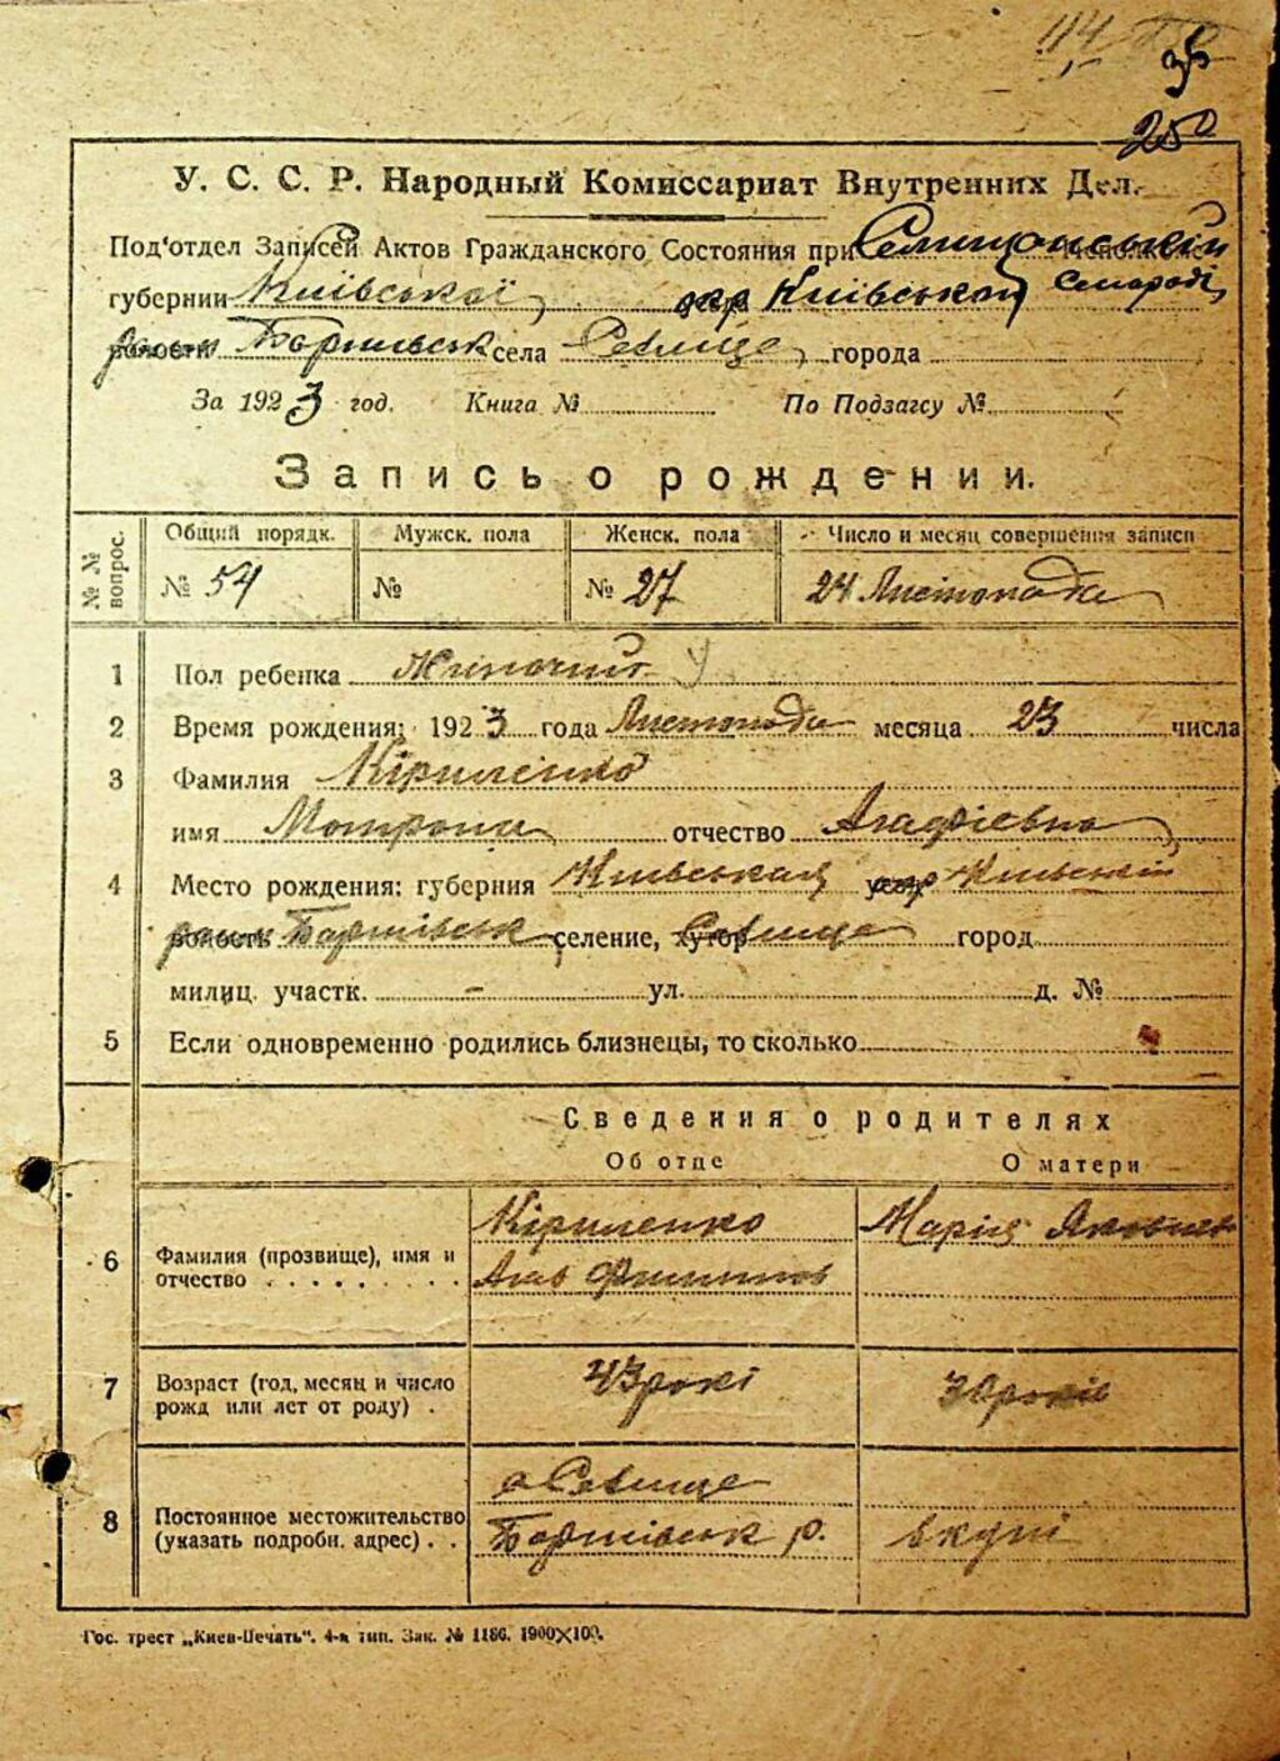 250
У. С. С. Р. Народный Комиссариат Внутренних Дел.
Под'отдел Записей Актов Гражданского Состояния при
губернии Київської окр Київської
села города
За 1923 год. Книга № По Подзагсу №
Запись о рождении.
№ № вопрос. Общий порядк. Мужск. пола Женск. пола Число и месяц совершения записи
№ 54 № № 27 24 Листопада
1 Пол ребенка Жиночий
2 Время рождения: 1923 года Листопада месяца 23 числа
3 Фамилия Кіриленко
имя Мотрона отчество Агафієвна
4 Место рождения: губерния Київськая окр Київський
селение, хутор город
милиц. участк. - ул. д. №
5 Если одновременно родились близнецы, то сколько
Сведения о родителях
Об отце О матери
6 Фамилия (прозвище), имя и отчество Кіриленко Марія
7 Возраст (год, месяц и число рожд или лет от роду) 43 рокі 30 років
8 Постоянное местожительство (указать подробн. адрес) р. вкупі
Гос. трест „Киев-Печать“. 4-я тип. Зак. № 1186. 1900×100.